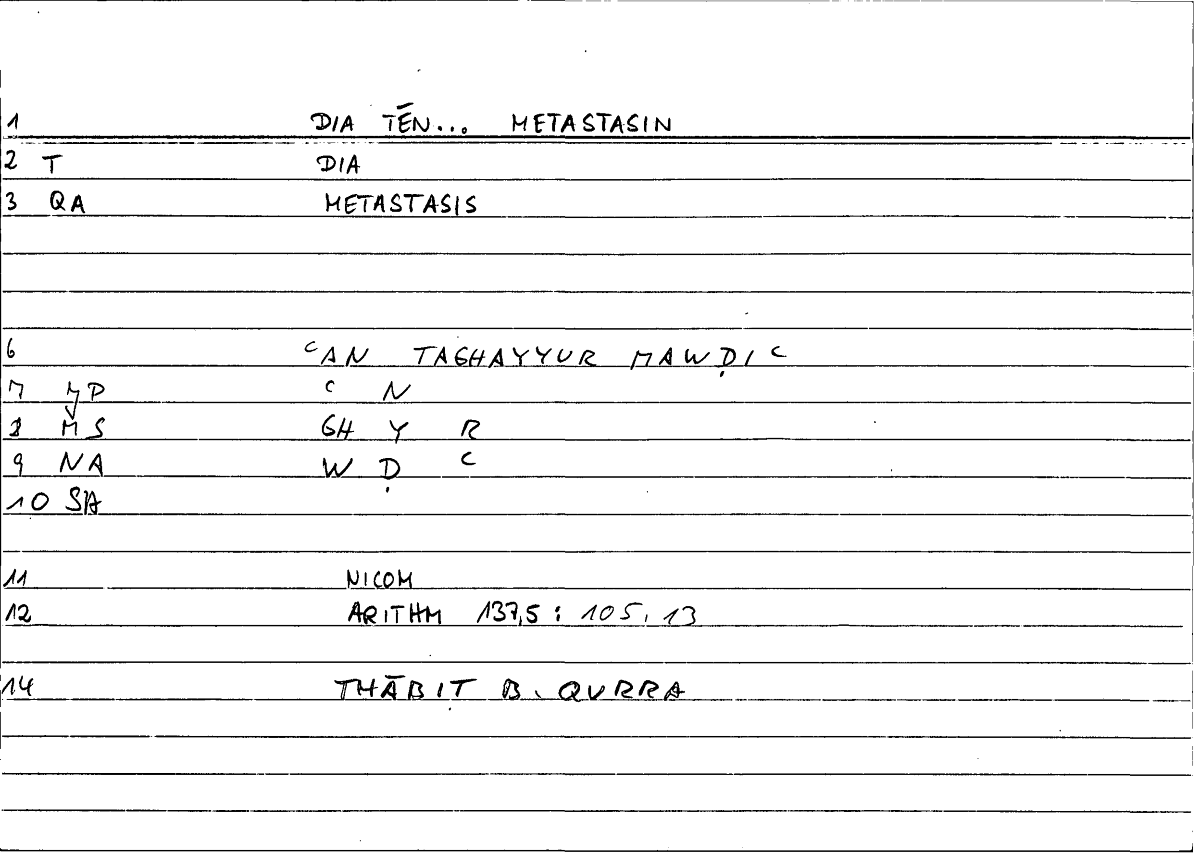 1 DIA TĒN... METASTASIN
2 T DIA
3 QA METASTASIS
6 ʿAN TAGHAYYUR MAWḌIʿ
7 ʿ N
8 MS GH Y R
9 NA W Ḍ ʿ
10 SA
11 NICOM
12 ARITHM 137,5 : 105,13
14 THĀBIT B. QURRA